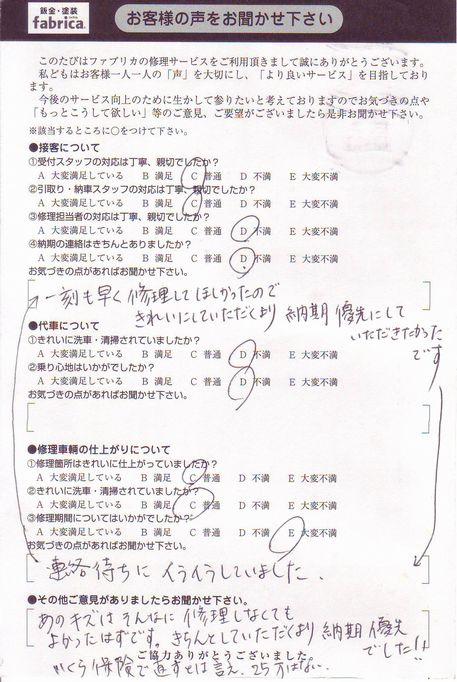 鈑金・塗装
fabrica.
お客様の声をお聞かせ下さい
このたびはファブリカの修理サービスをご利用頂きまして誠にありがとうございます。
私どもはお客様一人一人の「声」を大切にし、「より良いサービス」を目指しており
ます。
今後のサービス向上のために生かして参りたいと考えておりますのでお気づきの点や
「もっとこうして欲しい」等のご意見、ご要望がございましたら是非お聞かせ下さい。
※該当するところに○をつけて下さい。
●接客について
①受付スタッフの対応は丁寧、親切でしたか?
A 大変満足している B 満足 C 普通 D 不満 E 大変不満
②引取り・納車スタッフの対応は丁寧、親切でしたか?
A 大変満足している B 満足 C 普通 D 不満 E 大変不満
③修理担当者の対応は丁寧、親切でしたか?
A 大変満足している B 満足 C 普通 D 不満 E 大変不満
④納期の連絡はきちんとありましたか?
A 大変満足している B 満足 C 普通 D 不満 E 大変不満
お気づきの点があればお聞かせ下さい。
一刻も早く修理してほしかったので
きれいにしていただくより 納期優先にして
いただきたかった
です
●代車について
①きれいに洗車・清掃されていましたか?
A 大変満足している B 満足 C 普通 D 不満 E 大変不満
②乗り心地はいかがでしたか?
A 大変満足している B 満足 C 普通 D 不満 E 大変不満
お気づきの点があればお聞かせ下さい。
●修理車輌の仕上がりについて
①修理箇所はきれいに仕上がっていましたか?
A 大変満足している B 満足 C 普通 D 不満 E 大変不満
②きれいに洗車・清掃されていましたか?
A 大変満足している B 満足 C 普通 D 不満 E 大変不満
③修理期間についてはいかがでしたか?
A 大変満足している B 満足 C 普通 D 不満 E 大変不満
お気づきの点があればお聞かせ下さい。
連絡待ちにイライラしていました.
●その他ご意見がありましたらお聞かせ下さい。
あのキズはそんなに修理しなくても
よかったはずです。きちんとしていただくより 納期優先
でした!!
ご協力ありがとうございました。
いくら保険で直すとは言え、25万はない.